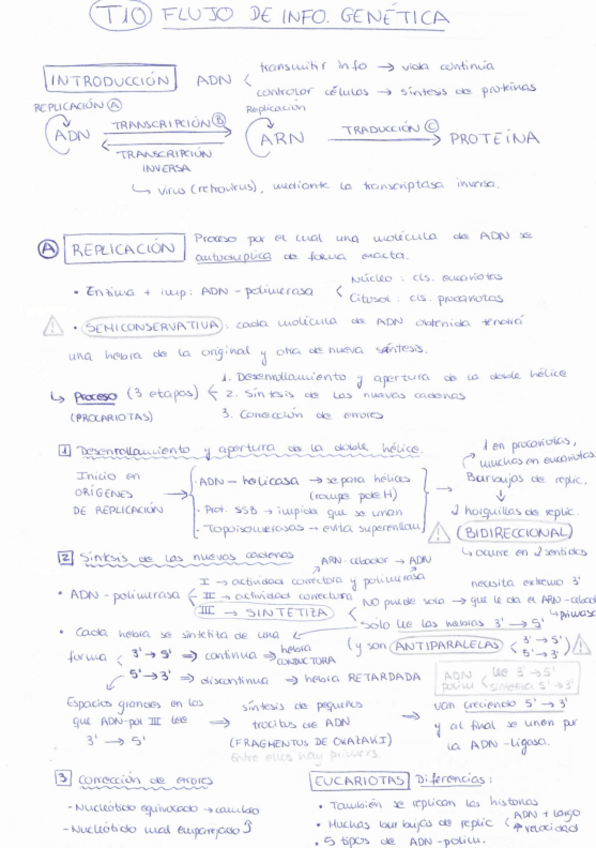 T10 FLUJO DE INFO. GENÉTICA
INTRODUCCIÓN ADN
transmitir info → vida continúa
controlar células → síntesis de proteínas
REPLICACIÓN Ⓐ Replicación
ADN TRANSCRIPCIÓN Ⓑ ARN TRADUCCIÓN Ⓒ PROTEÍNA
TRANSCRIPCIÓN
INVERSA
↳ virus (retrovirus), mediante la transcriptasa inversa.
Ⓐ REPLICACIÓN Proceso por el cual una molécula de ADN se
autoduplica de forma exacta.
• Enzima + imp: ADN-polimerasa
Núcleo: cls. eucariotas
Citosol: cls. procariotas
⚠ • SEMICONSERVATIVA: cada molécula de ADN obtenida tendrá
una hebra de la original y otra de nueva síntesis.
↳ Proceso (3 etapas)
(PROCARIOTAS)
1. Desenrollamiento y apertura de la doble hélice
2. Síntesis de las nuevas cadenas
3. Corrección de errores
1 Desenrollamiento y apertura de la doble hélice.
Inicio en
ORÍGENES
DE REPLICACIÓN →
· ADN-helicasa → separa hélices
(rompe pdeH)
· Prot. SSB → impide que se unan
· Topoisomerasas → evita superenrollam
→ Burbujas de replic.
1 en procariotas,
muchas en eucariotas
↓
2 horquillas de replic.
⚠ (BIDIRECCIONAL)
↳ ocurre en 2 sentidos
2 Síntesis de las nuevas cadenas
ARN-cebador → ADN
• ADN-polimerasa
I → actividad correctora y polimerasa
II → actividad correctora
III → SINTETIZA
necesita extremo 3'
NO puede sola → que le da el ARN-cebador
↳ primasa
Sólo lee las hebras 3' → 5'
(y son ANTIPARALELAS 3' → 5' 5' → 3') ⚠
• Cada hebra se sintetiza de una
forma
3' → 5' ⇒ continua ⇒ hebra CONDUCTORA
5' → 3' ⇒ discontinua → hebra RETARDADA
ADN polim lee 3' → 5' sintetiza 5' → 3'
Espacios grandes en los
que ADN-pol III lee
3' → 5'
⇒ síntesis de pequeños
trocitos de ADN
(FRAGMENTOS DE OKAZAKI)
Entre ellos hay primers.
⇒ van creciendo 5' → 3'
y al final se unen por
la ADN-ligasa.
3 Corrección de errores
- Nucleótido equivocado → cambio
- Nucleótido mal emparejado
EUCARIOTAS Diferencias:
• También se replican las histonas
• Muchas burbujas de replic ADN + largo ↑ velocidad
• 5 tipos de ADN-polim.